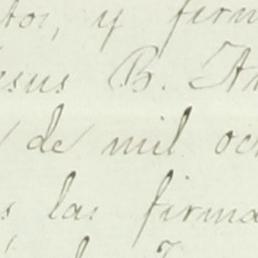 tos, y firm
esus B. A
de mil oc
s las firma